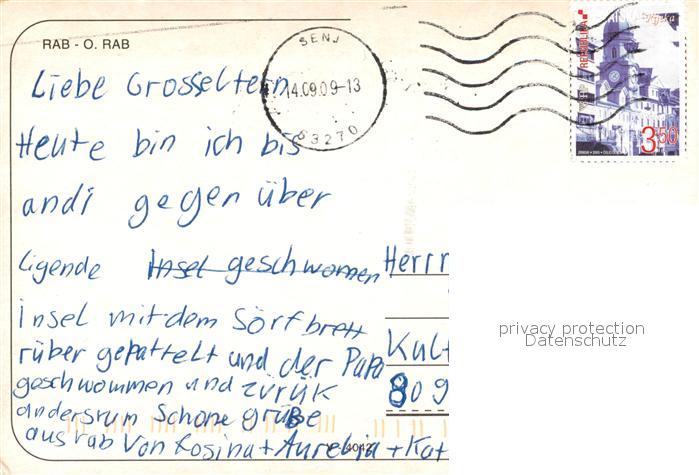 RAB - O. RAB
SENJ
14.09.09-13
53270
Rijeka
REPUBLIKA
3.50
Liebe Grosseltern
Heute bin ich bis
andi gegen über
ligende Insel geschwommen
insel mit dem Sörfbrett
rüber gepattelt und der Papa
geschwommen und zürük
andersrum Schöne grüße
aus rab Von Rosina + Aurelia + Kat
Herrr
Kult
809
privacy protection
Datenschutz